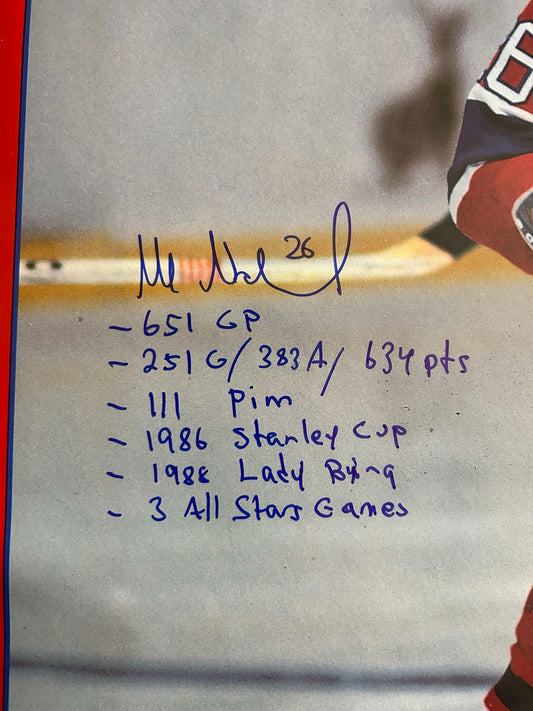 8
26
- 651 GP
- 251 G/ 383 A/ 634 pts
- 111 Pim
- 1986 Stanley Cup
- 1988 Lady Byng
- 3 All Stars Games